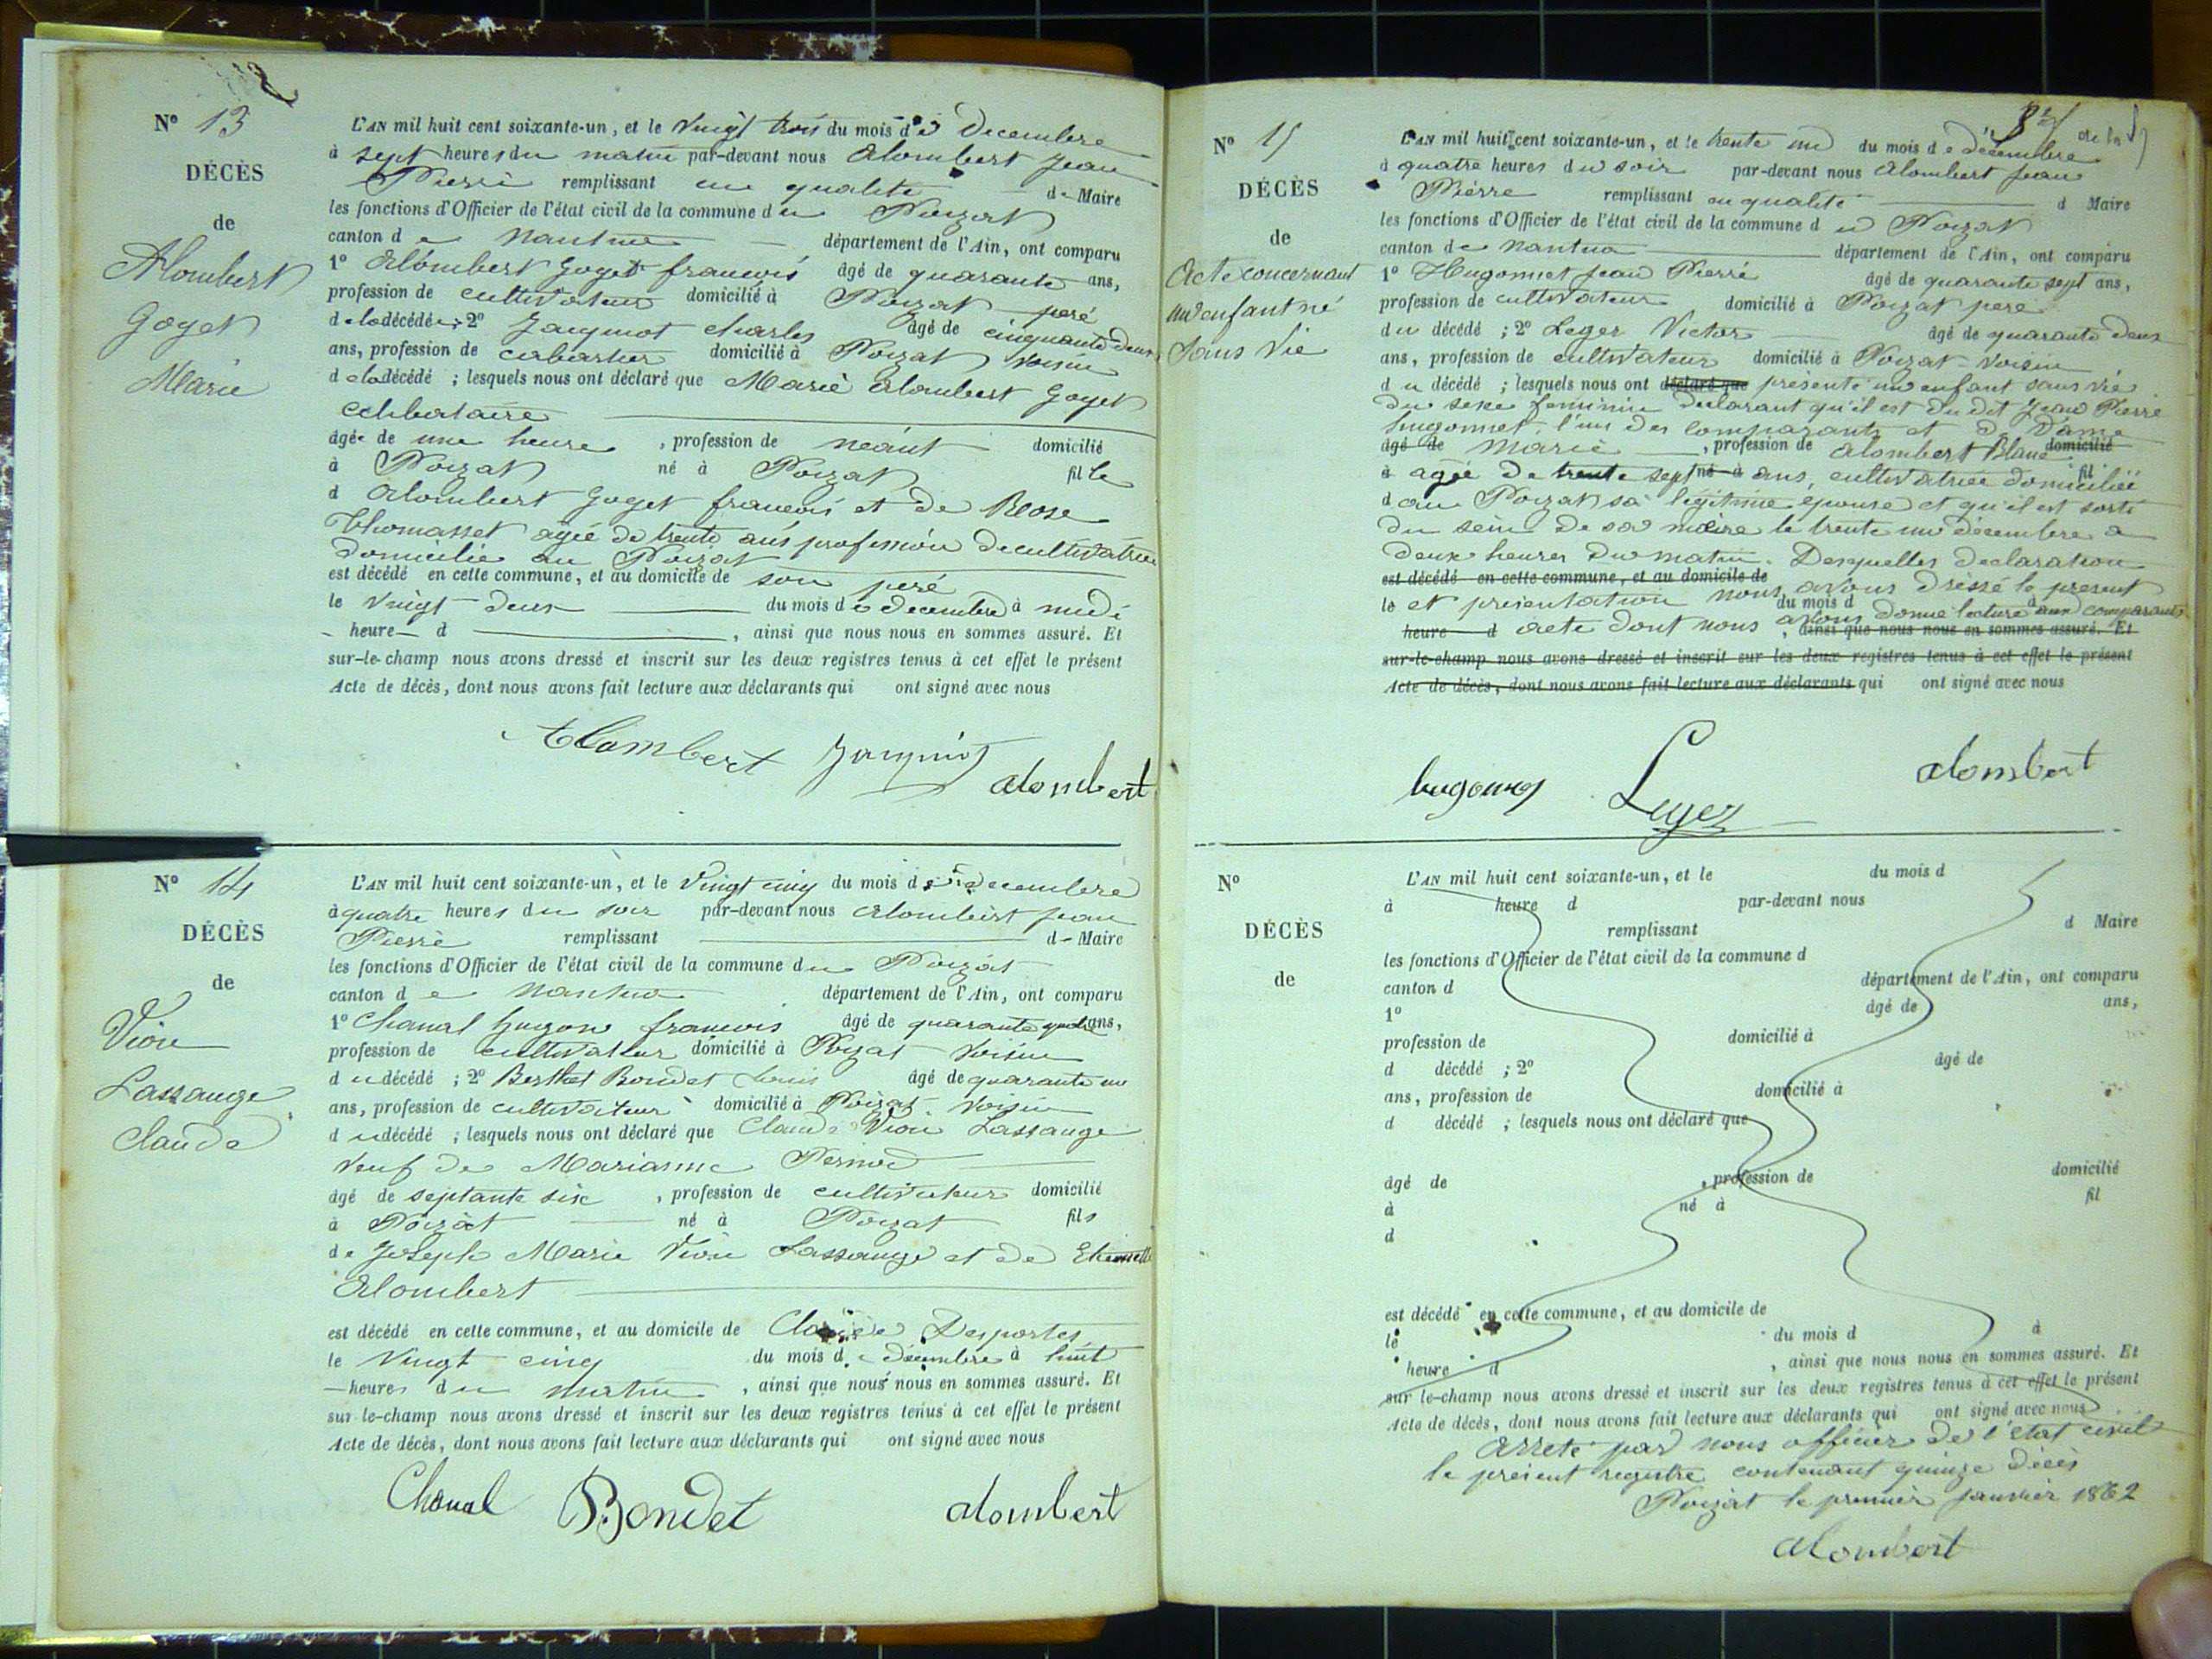 N° 13
DÉCÈS
de
Alombert
Goyet
Marie
L'AN mil huit cent soixante-un, et le vingt trois du mois de décembre
à sept heures du matin par-devant nous Alombert Jean
Pierre remplissant en qualité de Maire
les fonctions d'Officier de l'état civil de la commune du Poizat
canton de Nantua département de l'Ain, ont comparu
1° Alombert Goyet francois âgé de quarante ans,
profession de cultivateur domicilié à Poizat père
de la décédée ; 2° Jacquinot charles âgé de cinquante deux
ans, profession de cabartier domicilié à Poizat voisin
de la décédé ; lesquels nous ont déclaré que Marie Alombert Goyet
celibataire
âgée de une heure , profession de néant domicilié
à Poizat né à Poizat fille
d Alombert Goyet francois et de Rose
Thomasset agée de trente ans profession de cultivatrice
domiciliée au Poizat
est décédé en cette commune, et au domicile de son père
le vingt deux du mois de decembre à midi
heure d , ainsi que nous nous en sommes assuré. Et
sur-le-champ nous avons dressé et inscrit sur les deux registres tenus à cet effet le présent
Acte de décès, dont nous avons fait lecture aux déclarants qui ont signé avec nous
Alombert Jacquinot
alombert
N° 14
DÉCÈS
de
Vion
Lassange
Claude
L'AN mil huit cent soixante-un, et le vingt cinq du mois de decembre
à quatre heures du soir par-devant nous Alombert Jean
Pierre remplissant d Maire
les fonctions d'Officier de l'état civil de la commune du Poizat
canton de Nantua département de l'Ain, ont comparu
1° Chanal francois âgé de quarante quatre ans,
profession de cultivateur domicilié à Poizat voisin
du décédé ; 2° Berthet Bondet Louis âgé de quarante un
ans, profession de cultivateur domicilié à Poizat voisin
du décédé ; lesquels nous ont déclaré que Claude Vion Lassange
veuf de Marianne Pernod
âgé de septante six , profession de cultivateur domicilié
à Poizat né à Poizat fils
de Joseph Marie Vion Lassange et de Etiennette
Alombert
est décédé en cette commune, et au domicile de Claude Desportes
le vingt cinq du mois de decembre à huit
heures du matin , ainsi que nous nous en sommes assuré. Et
sur-le-champ nous avons dressé et inscrit sur les deux registres tenus à cet effet le présent
Acte de décès, dont nous avons fait lecture aux déclarants qui ont signé avec nous
Chanal Bondet alombert
N° 15
DÉCÈS
de
Acte concernant
un enfant né
sans vie
L'AN mil huit cent soixante-un, et le trente un du mois de décembre
à quatre heures du soir par-devant nous Alombert Jean
Pierre remplissant en qualité d Maire
les fonctions d'Officier de l'état civil de la commune du Poizat
canton de Nantua département de l'Ain, ont comparu
1° Hugonnet Jean Pierre âgé de quarante sept ans,
profession de cultivateur domicilié à Poizat père
du décédé ; 2° Leger Victor âgé de quarante deux
ans, profession de cultivateur domicilié à Poizat voisin
du décédé ; lesquels nous ont déclaré que présenté un enfant sans vie
du sexe feminin declarant qu'il est du dit Jean Pierre
hugonnet, l'un des comparants et de Dame
âgé de Marie , profession de Alombert Blanc domicilié
à agée de trente sept né à ans, cultivatrice domiciliée fil
d au Poizat sa légitime epouse et qu'il est sorti
du sein de sa mère le trente un décembre a
deux heures du matin. Desquelles declaration
est décédé en cette commune, et au domicile de
le et présentation nous avons dressé le present
du mois d à
heure d acte dont nous avons donné lecture aux comparants
, ainsi que nous nous en sommes assuré. Et
sur-le-champ nous avons dressé et inscrit sur les deux registres tenus à cet effet le présent
Acte de décès, dont nous avons fait lecture aux déclarants qui ont signé avec nous
hugonnet Leger alombert
N°
DÉCÈS
de
L'AN mil huit cent soixante-un, et le du mois d
à heure d par-devant nous
remplissant d Maire
les fonctions d'Officier de l'état civil de la commune d
canton d département de l'Ain, ont comparu
1° âgé de ans,
profession de domicilié à
d décédé ; 2° âgé de
ans, profession de domicilié à
d décédé ; lesquels nous ont déclaré que
âgé de , profession de domicilié
à né à fil
d
est décédé en cette commune, et au domicile de
le du mois d à
heure d , ainsi que nous nous en sommes assuré. Et
sur-le-champ nous avons dressé et inscrit sur les deux registres tenus à cet effet le présent
Acte de décès, dont nous avons fait lecture aux déclarants qui ont signé avec nous
Arreté par nous officier de l'etat civil
le présent registre contenant quinze décès
Poizat le premier janvier 1862
alombert